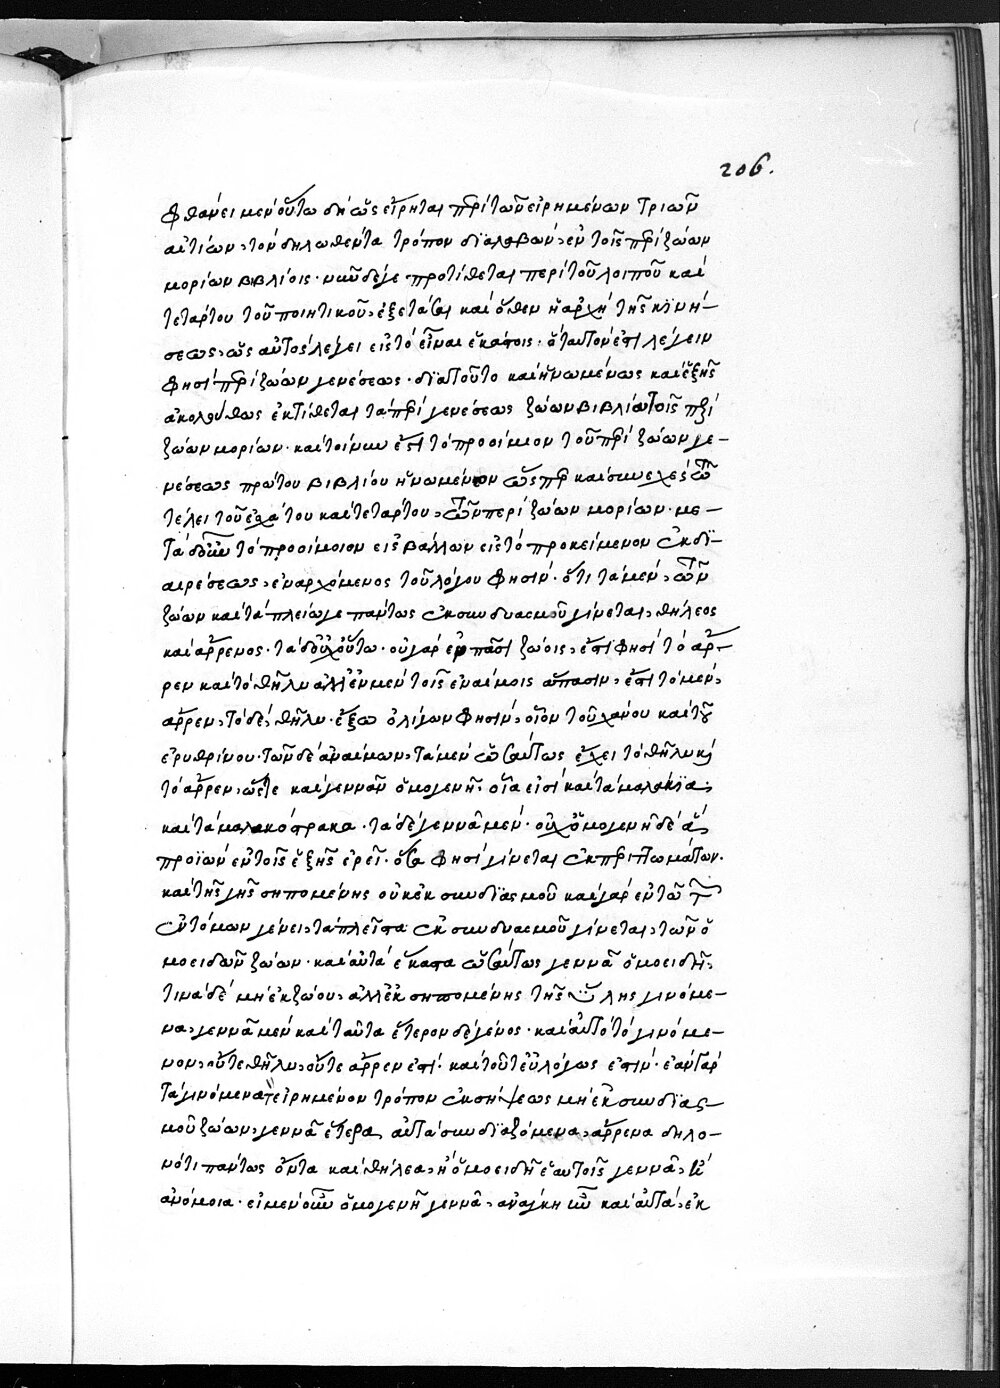 206.
φθάνει μὲν οὕτω δὴ ὡς εἴρηται περὶ τῶν εἰρημένων τριῶν
αἰτίων, τὸν δηλωθέντα τρόπον διαλαβὼν, ἐν τοῖς περὶ ζώων
μορίων βιβλίοις. νῦν δέ γε προτίθεται περὶ τοῦ λοιποῦ καὶ
τετάρτου τοῦ ποιητικοῦ, ἐξετάσαι καὶ ὅθεν ἡ ἀρχὴ τῆς κινή-
σεως, ὡς αὐτὸς λέγει εἰς τὸ εἶναι ἑκάστοις. ὃ ταυτόν ἐστι λέγειν
φησὶ περὶ ζώων γενέσεως. διὰ τοῦτο καὶ ἡνωμένως καὶ ἑξῆς
ἀκολούθως ἐκτίθεται τὰ περὶ γενέσεως ζώων βιβλία τοῖς περὶ
ζώων μορίων. καὶ τοίνυν ἐστὶ τὸ προοίμιον τοῦ περὶ ζώων γε-
νέσεως πρώτου βιβλίου ἡνωμένον ὥσπερ καὶ συνεχὲς τῷ
τέλει τοῦ ἐσχάτου καὶ τετάρτου, τῶν περὶ ζώων μορίων. με-
τὰ δ' οὖν τὸ προοίμοιον εἰσβάλλων εἰς τὸ προκείμενον ἐκ δι-
αιρέσεως, ἐναρχόμενος τοῦ λόγου φησὶν. ὅτι τὰ μὲν, τῶν
ζώων καὶ τὰ πλείω γε πάντως ἐκ συνδυασμοῦ γίνεται, θήλεος
καὶ ἄρρενος. τὰ δ' οὐχ οὕτω. οὐ γὰρ ἐν πᾶσι ζώοις, ἔστι φησὶ τὸ ἄρ-
ρεν καὶ τὸ θῆλυ ἀλλ' ἐν μὲν τοῖς ἐναίμοις ἅπασιν, ἔστι τὸ μὲν,
ἄρρεν, τὸ δὲ, θῆλυ. ἔξω ὀλίγων φησὶν, οἷον τοῦ χάνου καὶ τοῦ
ἐρυθρίνου. τῶν δὲ ἀναίμων, τὰ μὲν ὡσαύτως ἔχει τὸ θῆλυ καὶ
τὸ ἄρρεν, ὥστε καὶ γεννᾶν ὁμογενῆ. οἷά εἰσι καὶ τὰ μαλάκια,
καὶ τὰ μαλακόστρακα. τὰ δὲ γεννᾶ μὲν. οὐχ ὁμογενῆ δέ ἃ,
προϊὼν ἐν τοῖς ἑξῆς ἐρεῖ. ὅσα φησὶ γίνεται ἐκ περιττωμάτων.
καὶ τῆς γῆς σηπομένης οὐκ ἐκ συνδιασμοῦ καὶ γὰρ ἐν τῷ τῶν
ἐντόμων γένει, τὰ πλεῖστα ἐκ συνδυασμοῦ γίνεται, τῶν ὁ
μοειδῶν ζώων. καὶ αὐτὰ ἕκαστα ὡσαύτως γεννᾶ ὁμοειδῆ,
τινὰ δὲ μὴ ἐκ ζώου, ἀλλ' ἐκ σηπομένης τῆς ὕλης γινόμε-
να, γεννᾶ μὲν καὶ ταῦτα ἕτερον δὲ γένος. καὶ αὐτὸ τὸ γινόμε-
νον, οὔτε θῆλυ, οὔτε ἄρρεν ἐστί. καὶ τοῦτ' εὐλόγως ἐστὶν. ἐὰν γὰρ
τὰ γινόμενα τ' εἰρημένον τρόπον ἐκ σήψεως μὴ ἐκ συνδιασ-
μοῦ ζώων, γεννᾶ ἕτερα, αὐτὰ συνδιαζόμενα, ἄρρενα δηλο-
νότι πάντως ὄντα καὶ θήλεα, ἢ ὁμοειδῆ ἑαυτοῖς γεννᾶ, ἢ
ἀνόμοια. εἰ μὲν οὖν ὁμογενῆ γεννᾶ, ἀνάγκη ἦν καὶ αὐτὰ, ἐκ